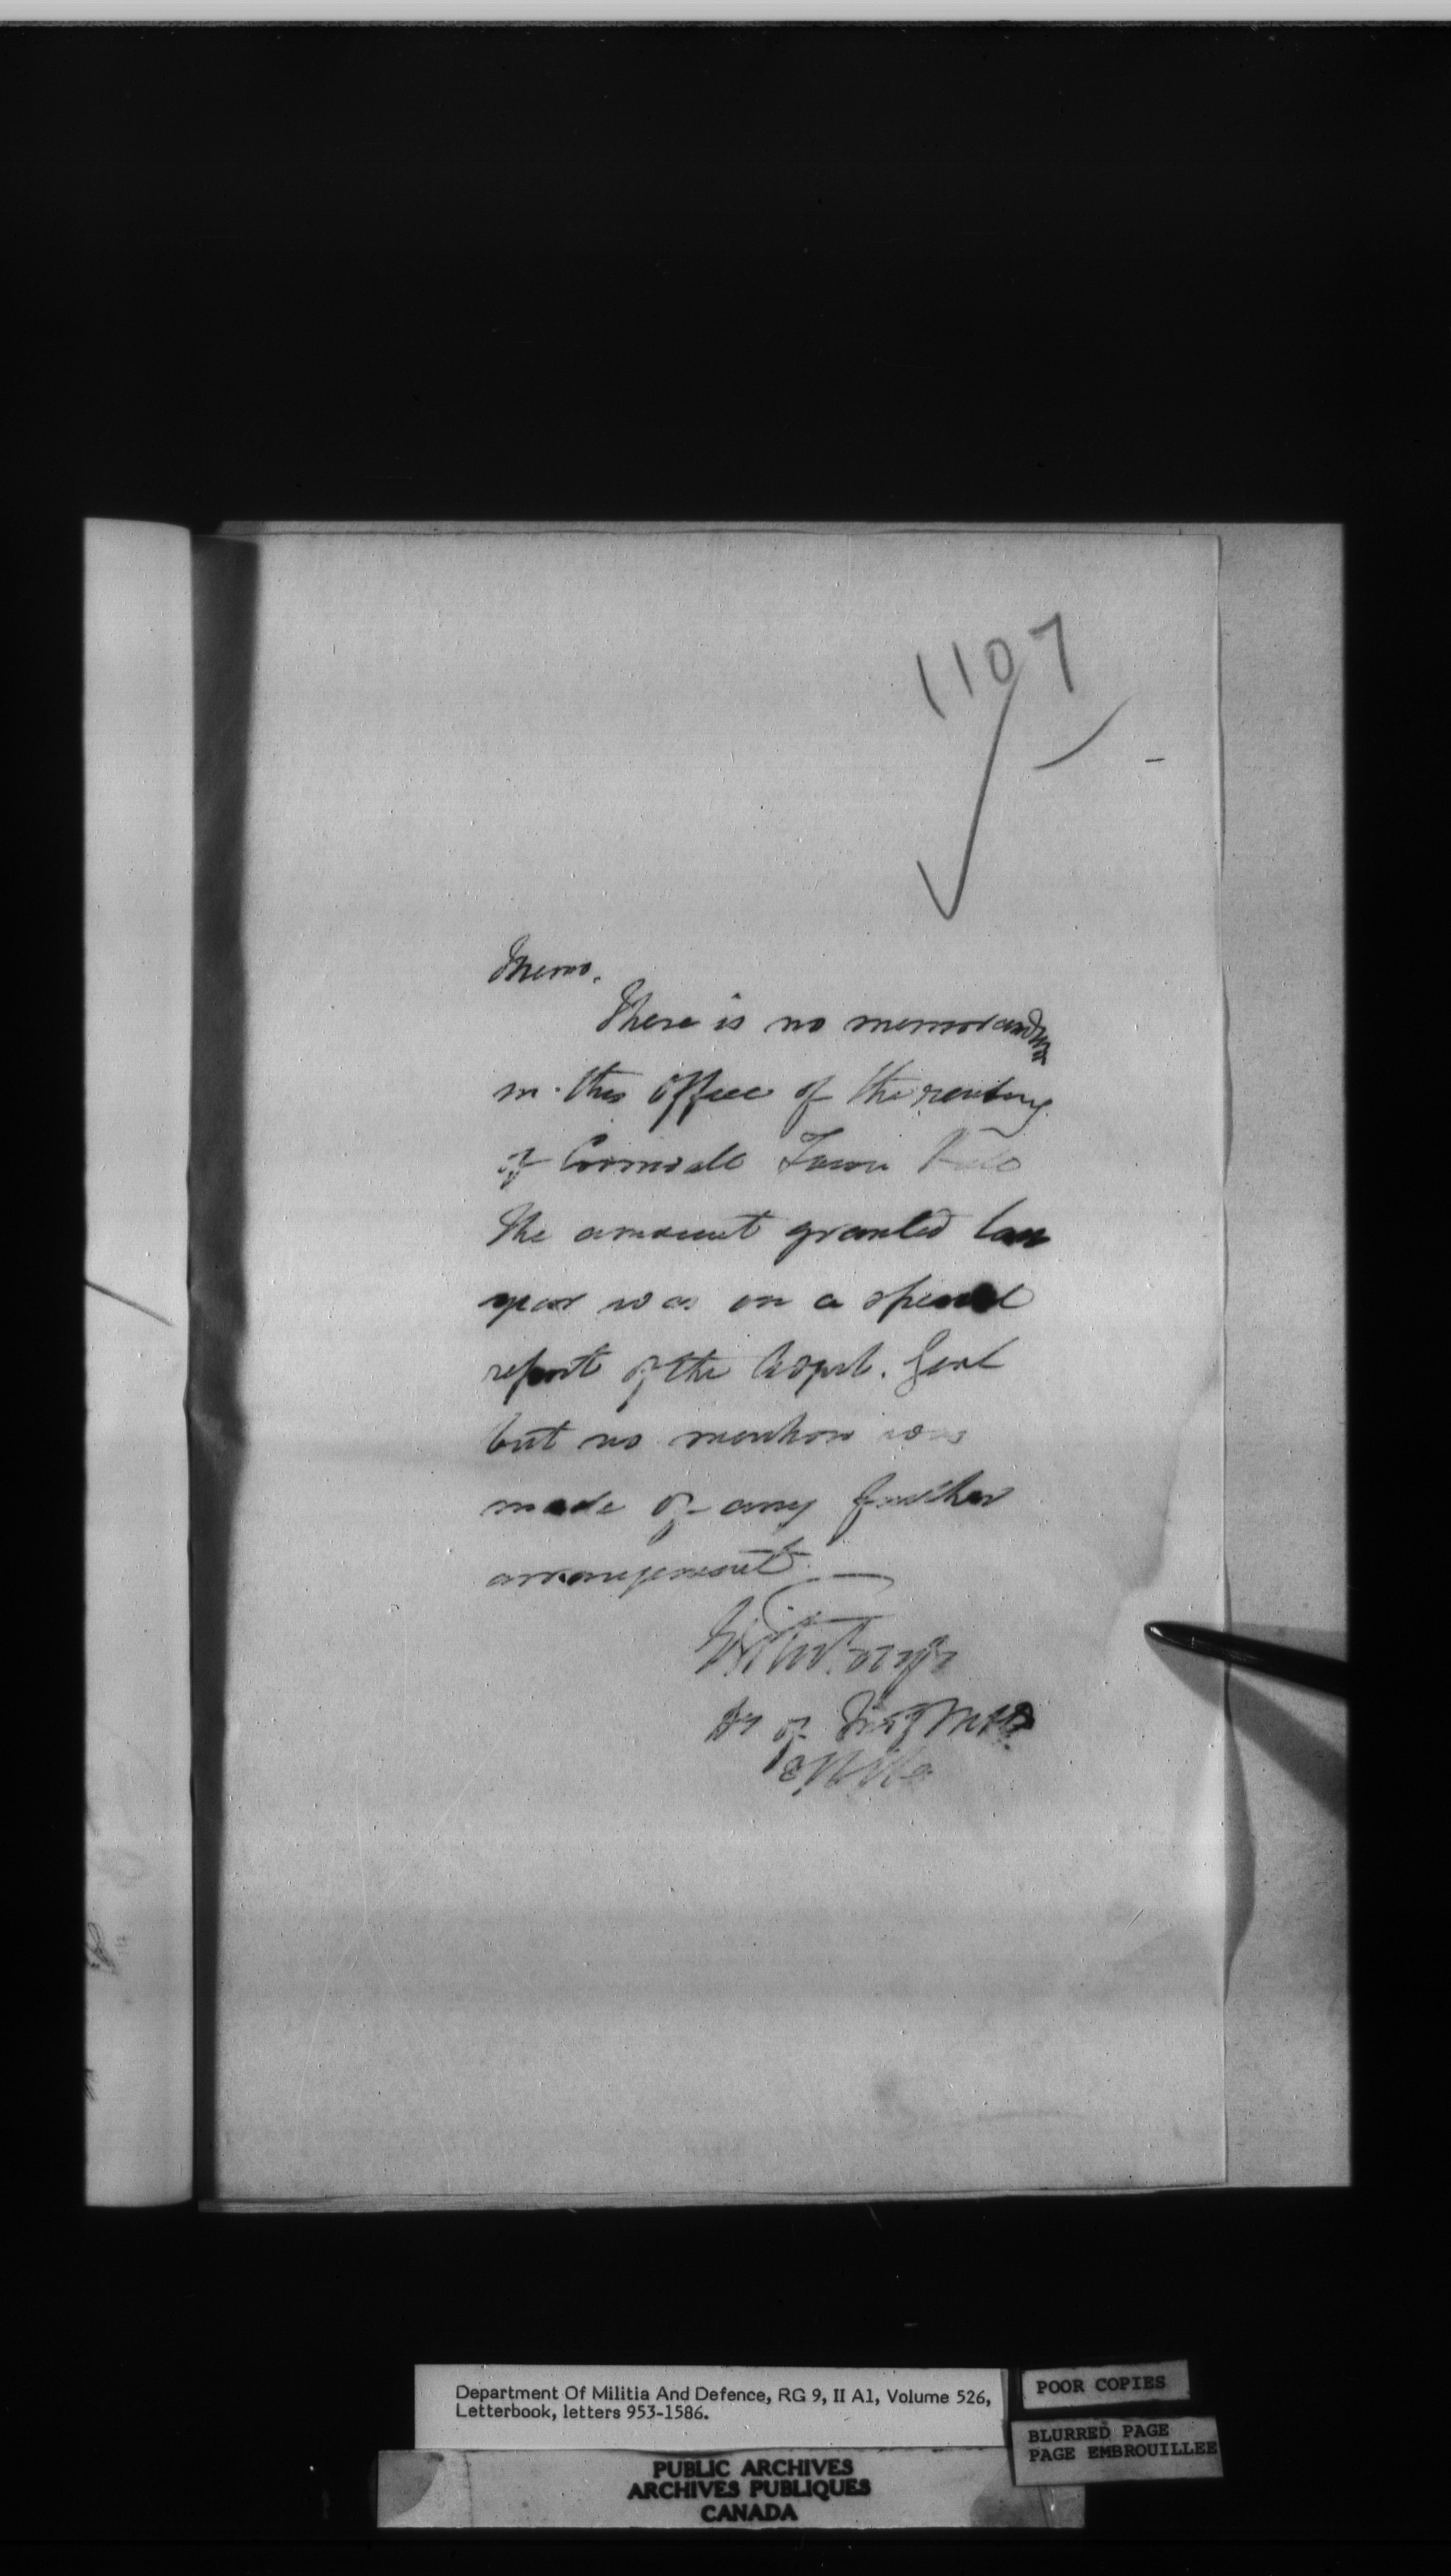 1107
Memo.
There is no memorandum
in this office of the renting
of Cornwall Town Hall
The amount granted last
year was on a special
report of the Adjut. Genl
but no mention was
made of any further
arrangement
of
Department Of Militia And Defence, RG 9, II A1, Volume 526,
Letterbook, letters 953-1586.
POOR COPIES
BLURRED PAGE
PAGE EMBROUILLEE
PUBLIC ARCHIVES
ARCHIVES PUBLIQUES
CANADA